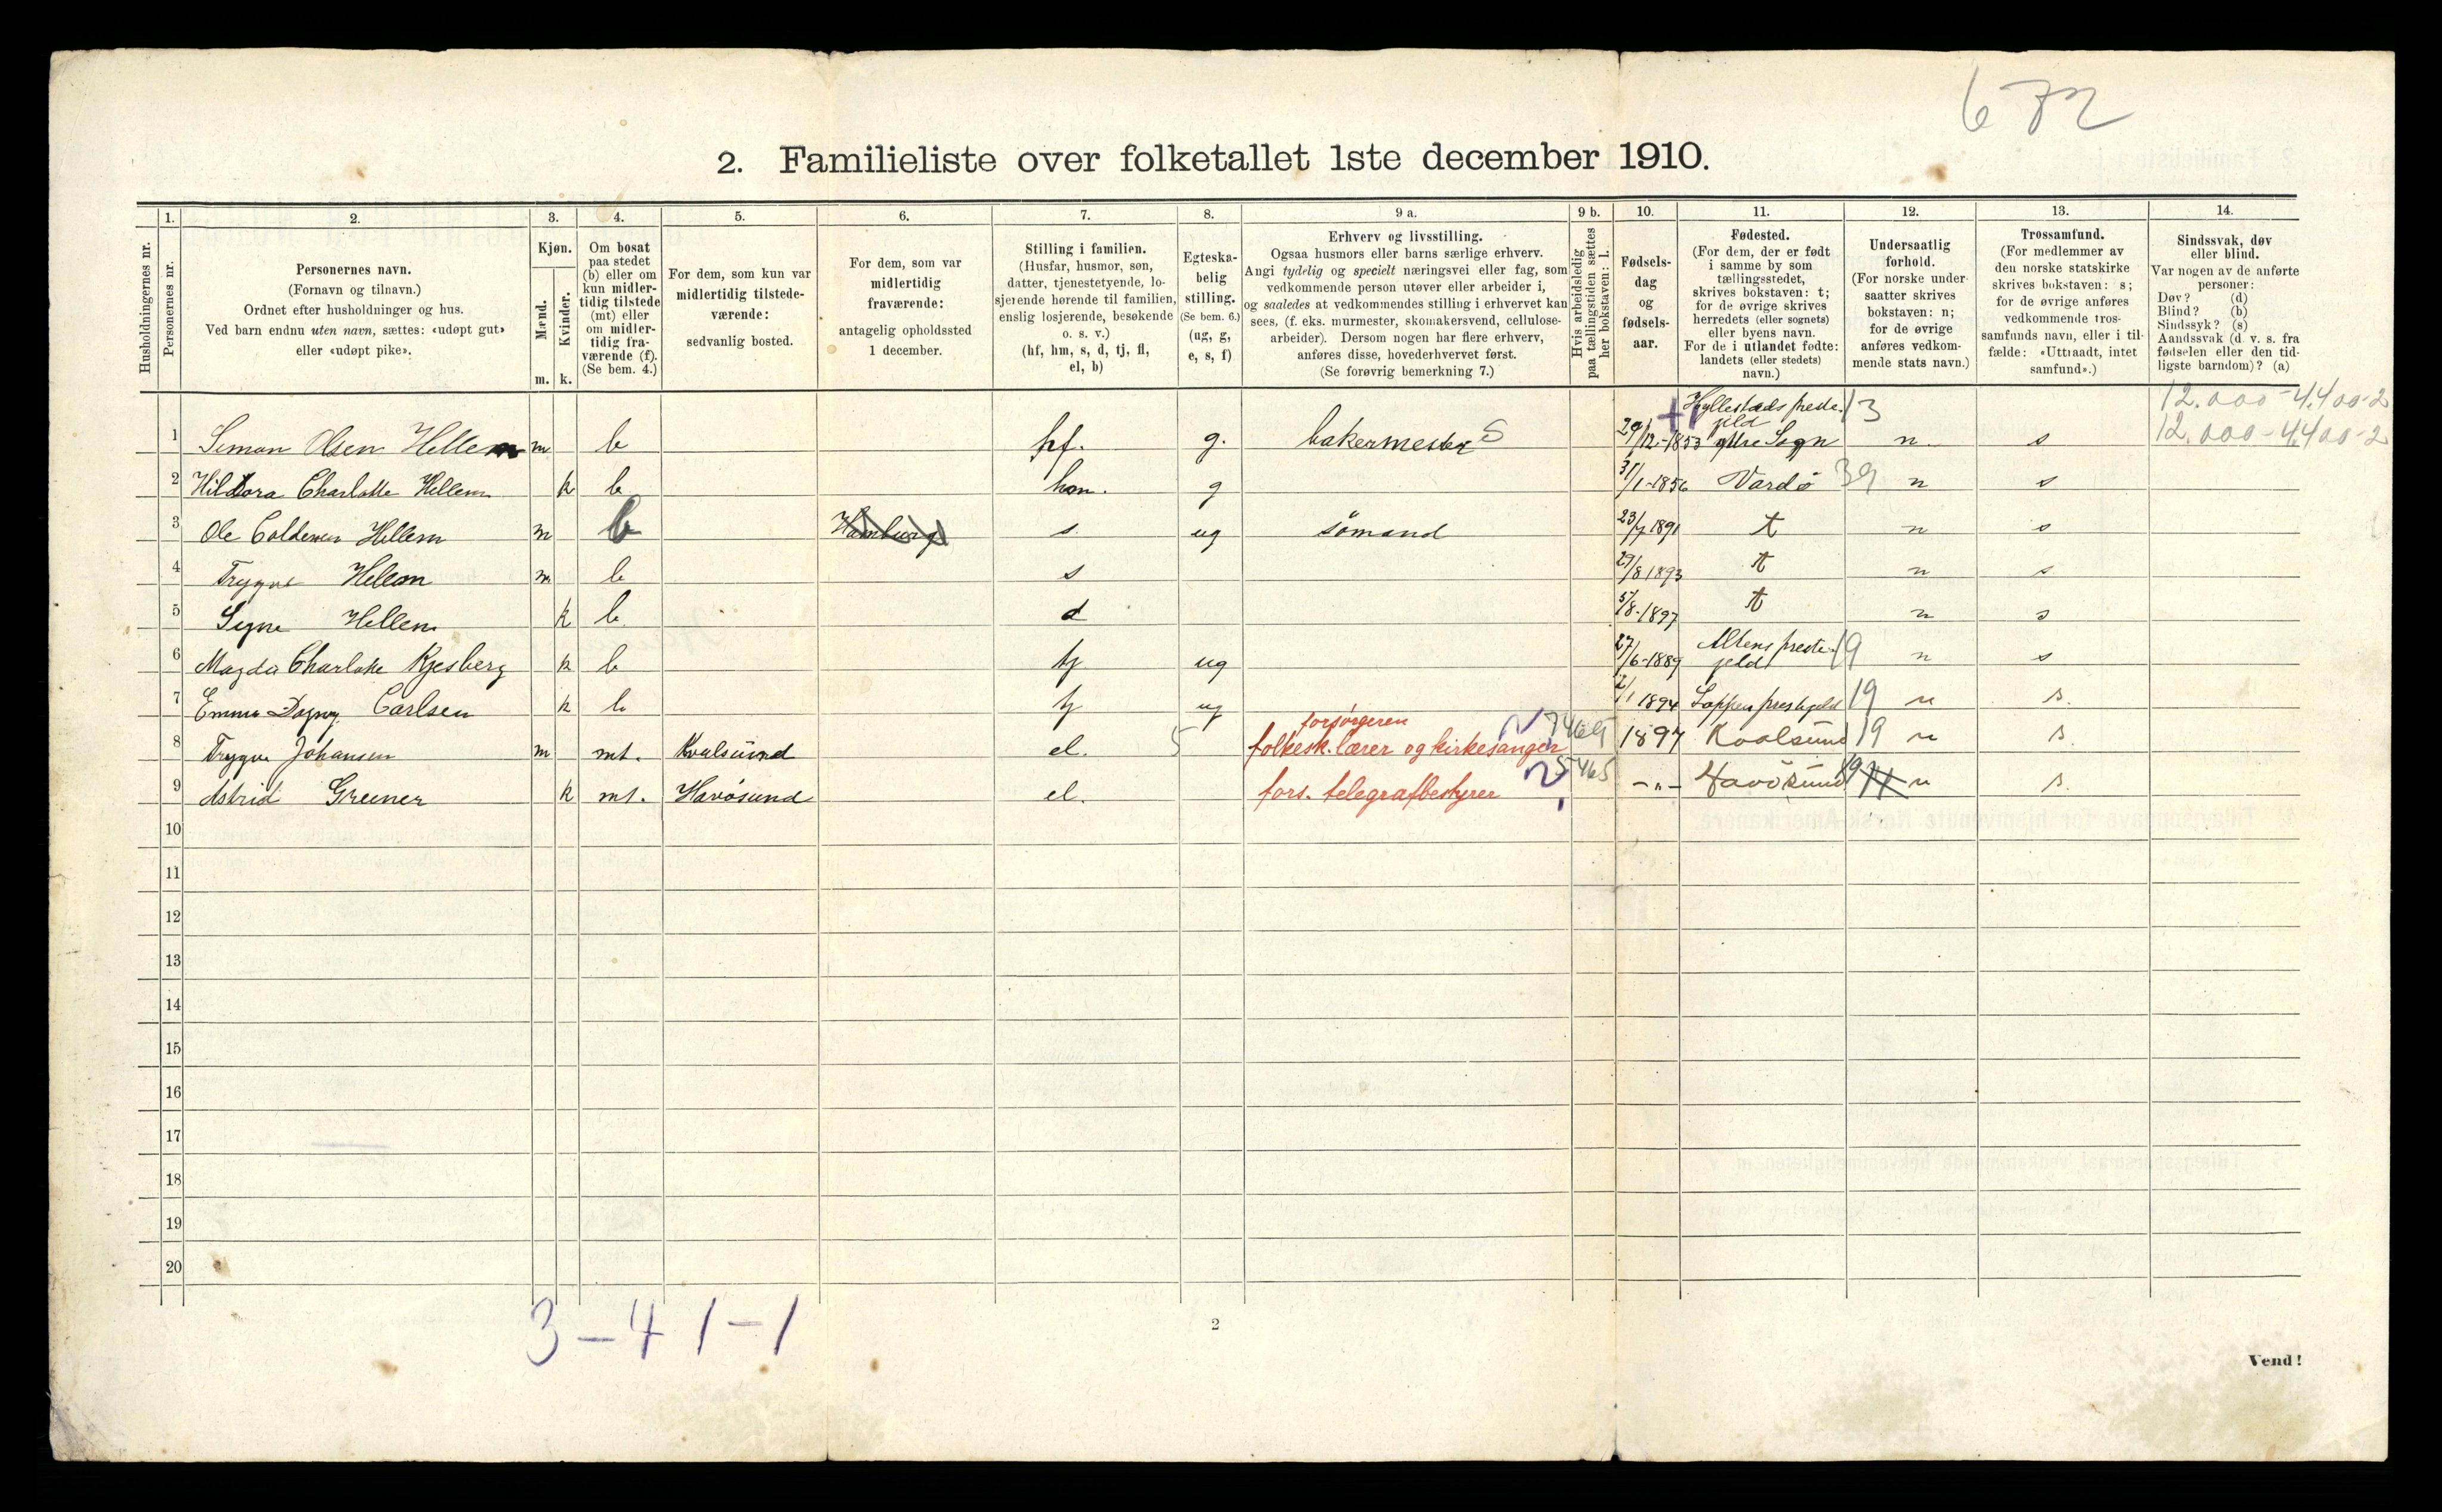 672
2. Familieliste over folketallet 1ste december 1910.
Husholdningernes nr.
1.
Personernes nr.
2.
Personernes navn.
(Fornavn og tilnavn.)
Ordnet efter husholdninger og hus.
Ved barn endnu uten navn, sættes: «udøpt gut»
eller «udøpt pike».
3.
Kjøn.
Mænd.
Kvinder.
m. k.
4.
Om bosat
paa stedet
(b) eller om
kun midler-
tidig tilstede
(mt) eller
om midler-
tidig fra-
værende (f).
(Se bem. 4.)
5.
For dem, som kun var
midlertidig tilstede-
værende:
sedvanlig bosted.
6.
For dem, som var
midlertidig
fraværende:
antagelig opholdssted
1 december.
7.
Stilling i familien.
(Husfar, husmor, søn,
datter, tjenestetyende, lo-
sjerende hørende til familien,
enslig losjerende, besøkende
o. s. v.)
(hf, hm, s, d, tj, fl,
el, b)
8.
Egteska-
belig
stilling.
(Se bem. 6.)
(ug, g,
e, s, f)
9 a.
Erhverv og livsstilling.
Ogsaa husmors eller barns særlige erhverv.
Angi tydelig og specielt næringsvei eller fag, som
vedkommende person utøver eller arbeider i,
og saaledes at vedkommendes stilling i erhvervet kan
sees, (f. eks. murmester, skomakersvend, cellulose-
arbeider). Dersom nogen har flere erhverv,
anføres disse, hovederhvervet først.
(Se forøvrig bemerkning 7.)
9 b.
Hvis arbeidsledig
paa tællingstiden sættes
her bokstaven: l.
10.
Fødsels-
dag
og
fødsels-
aar.
11.
Fødested.
(For dem, der er født
i samme by som
tællingsstedet,
skrives bokstaven: t;
for de øvrige skrives
herredets (eller sognets)
eller byens navn.
For de i utlandet fødte:
landets (eller stedets)
navn.)
12.
Undersaatlig
forhold.
(For norske under-
saatter skrives
bokstaven: n;
for de øvrige
anføres vedkom-
mende stats navn.)
13.
Trossamfund.
(For medlemmer av
den norske statskirke
skrives bokstaven: s;
for de øvrige anføres
vedkommende tros-
samfunds navn, eller i til-
fælde: «Uttraadt, intet
samfund».)
14.
Sindssvak, døv
eller blind.
Var nogen av de anførte
personer:
Døv? (d)
Blind? (b)
Sindssyk? (s)
Aandssvak (d. v. s. fra
fødselen eller den tid-
ligste barndom)? (a)
12.000-4.400-2
1 Simon Olsen Hellem m b hf. g. bakermester S 29/12.-1853 Hyllestads preste- jeld ytre Sogn 13 n s 12.000-4400-2
2 Hildora Charlotte Hellem k b hm. g 31/1-1856 Vardö 39 n s
3 Ole Coldevin Hellem m b Hamburg s ug sömand 23/7 1891 t n s
4 Trygve Hellem m b s 29/8 1893 t n s
5 Signe Hellem k b d 5/8-1897 t n s
6 Magda Charlotte Kjesberg k b tj ug 27/6-1889 Altens preste- jeld 19 n s
7 Emma Dagny Carlsen k b tj ug 2/1 1894 Loppen prestegjeld 19 n s.
forsörgeren
8 Trygve Johansen m mt. Kvalsund el. 5 folkesk. lærer og kirkesanger 7469 1897 Kvalsund 19 n s.
9 Astrid Greiner k mt. Havösund el. fors. telegrafbestyrer 5465 -"- Havösund 19 n s.
10
11
12
13
14
15
16
17
18
19
20
3-4 1-1
2
Vend!